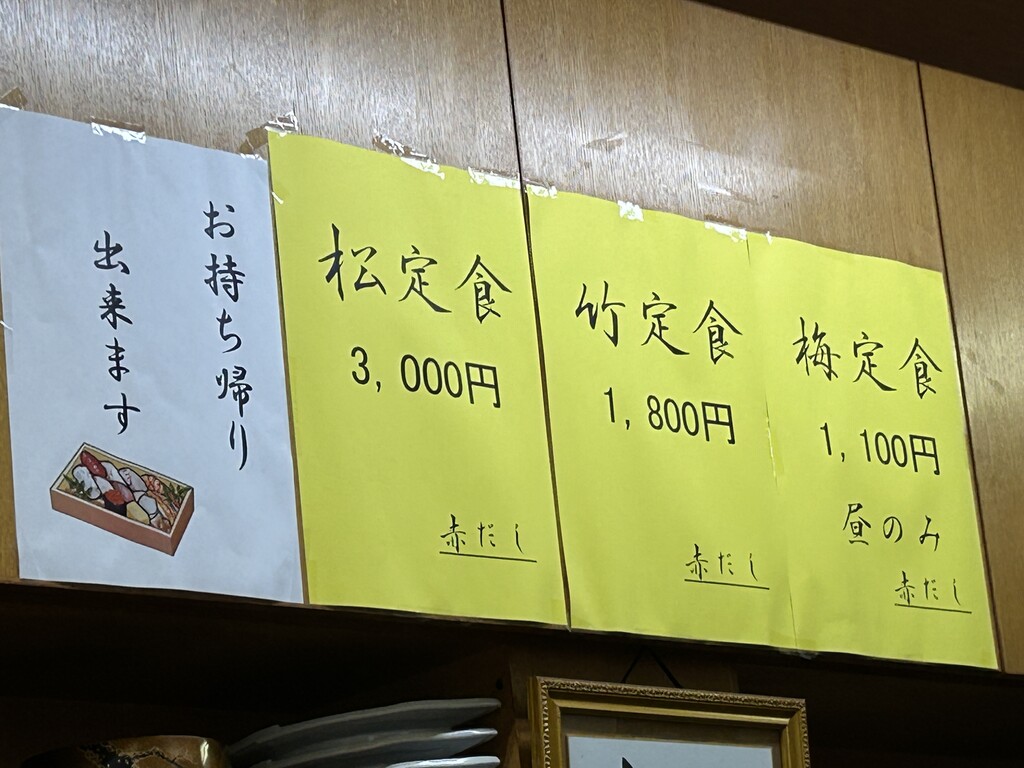 お持ち帰り
出来ます
松定食
3,000円
赤だし
竹定食
1,800円
赤だし
梅定食
1,100円
昼のみ
赤だし